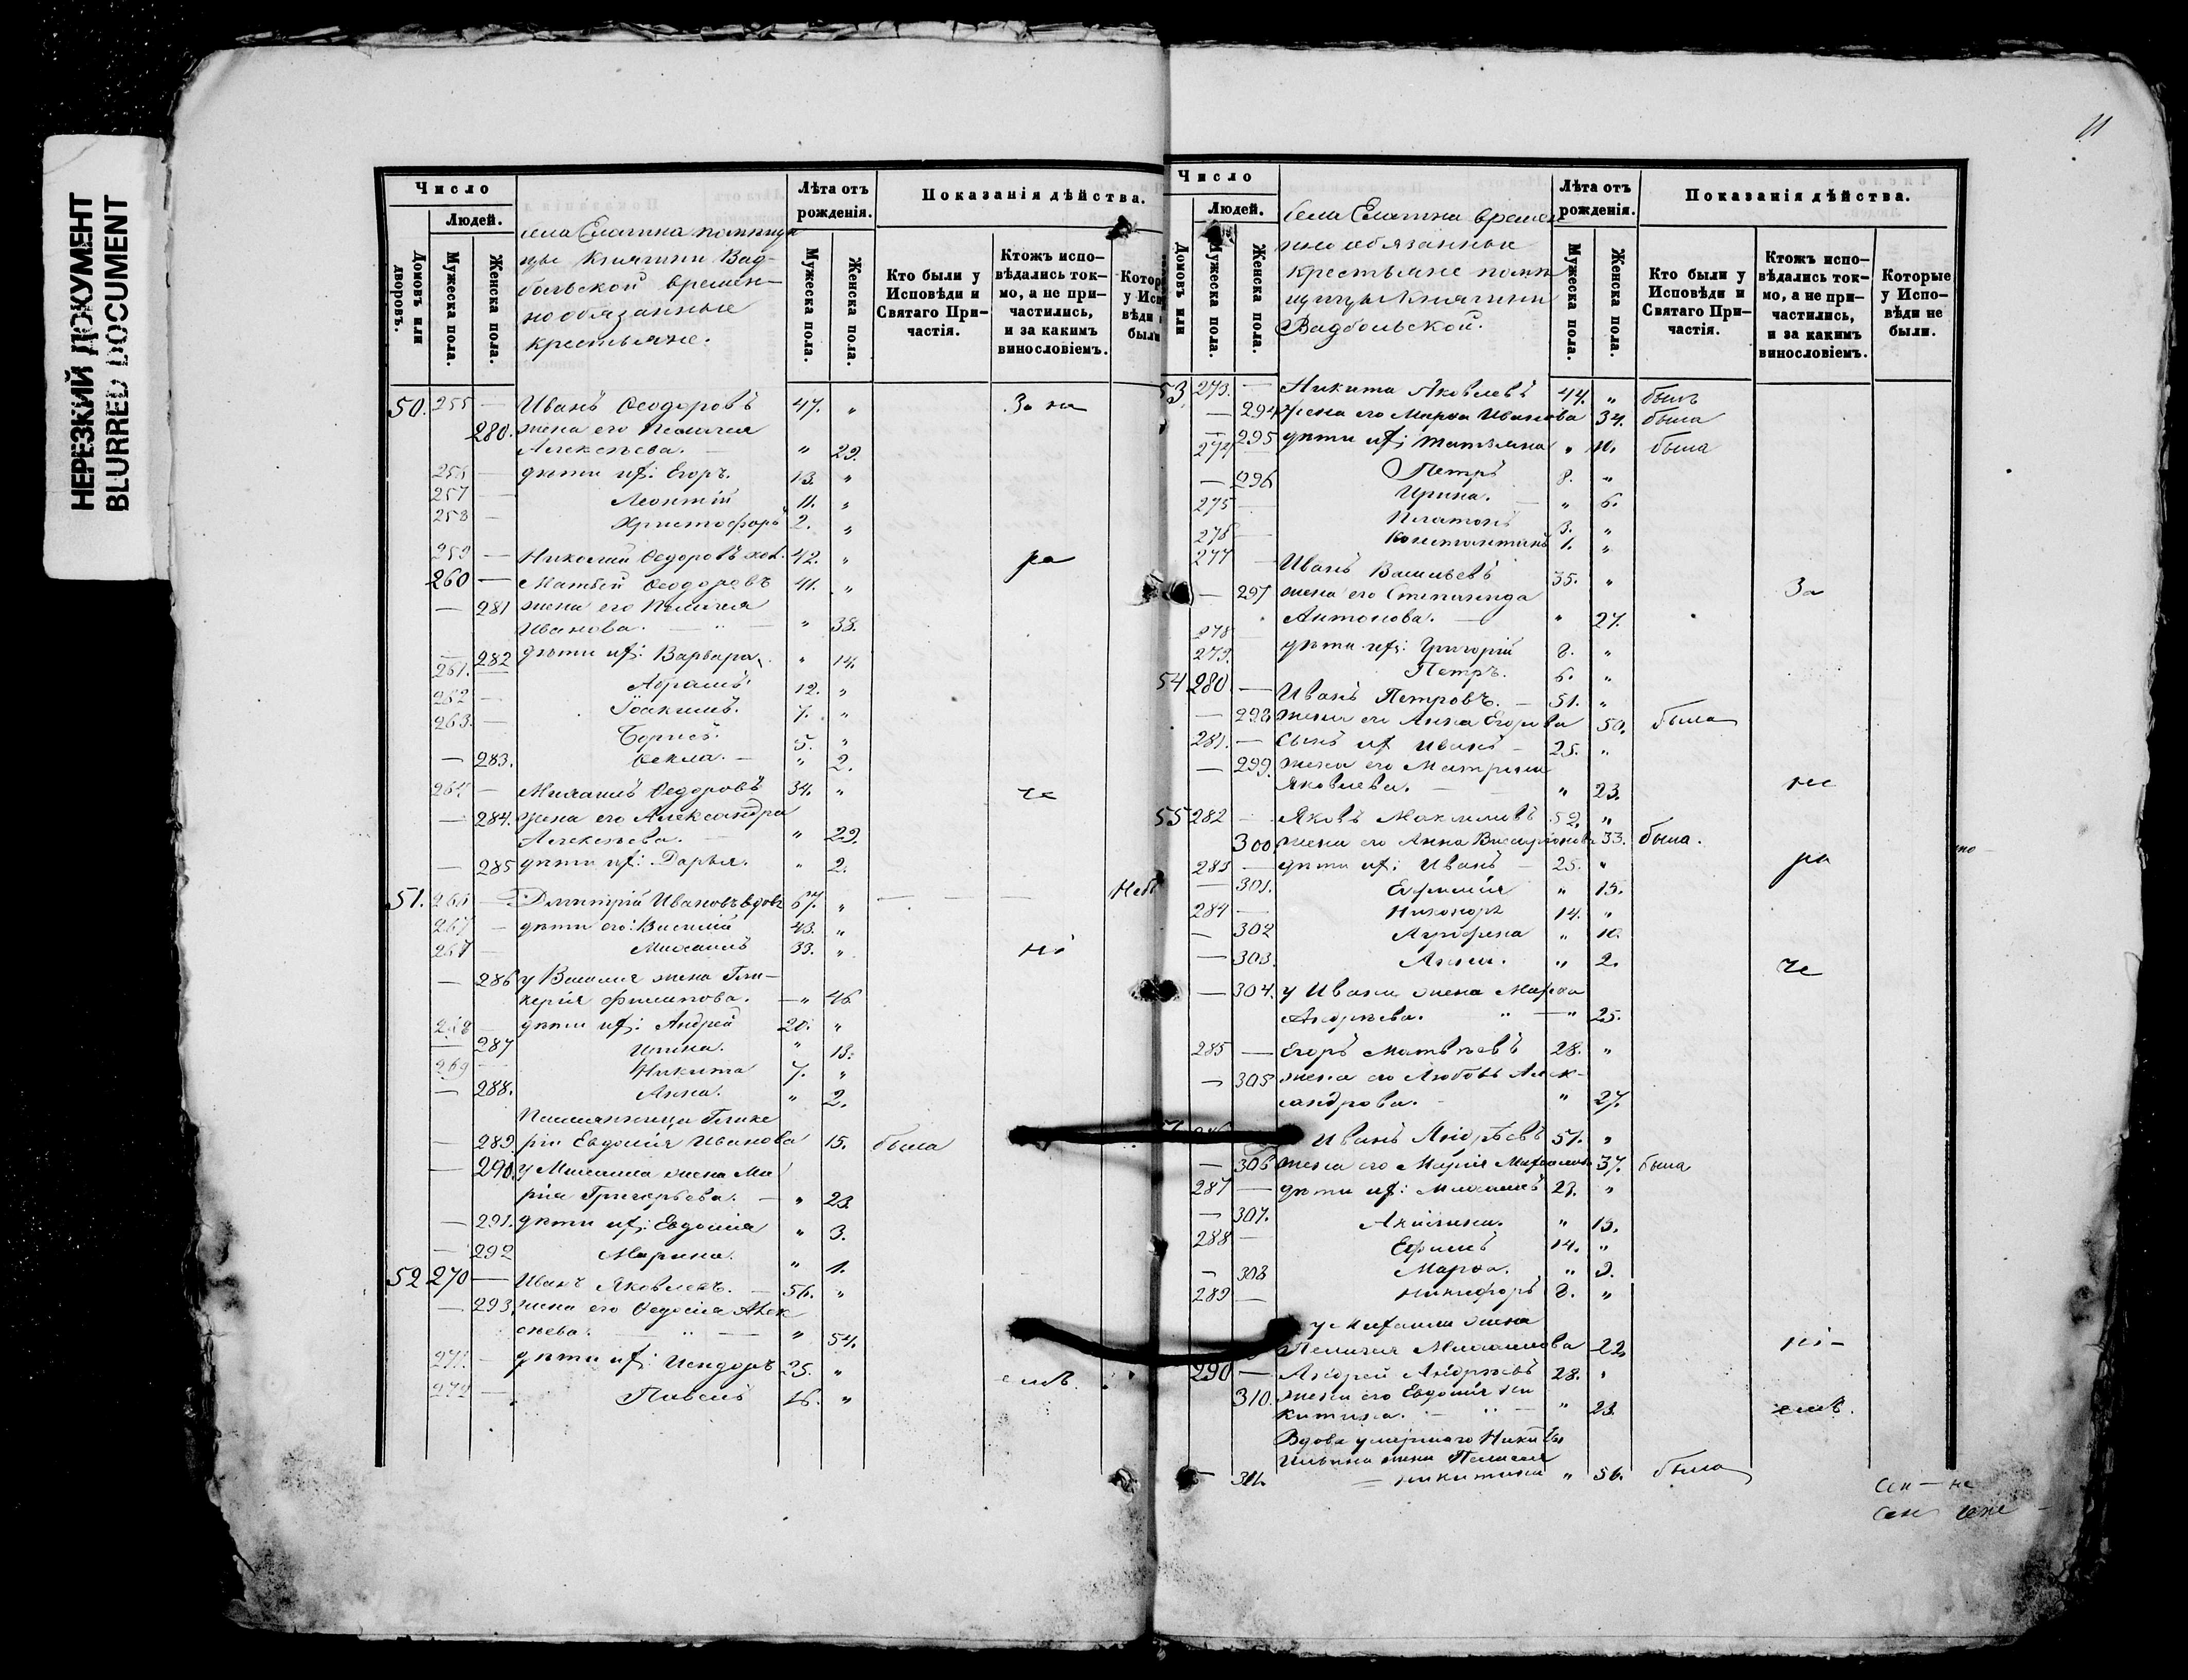 НЕРЕЗКИЙ ДОКУМЕНТ
BLURRED DOCUMENT
11
Число
Людей.
Домовъ или дворовъ.
Мужеска пола.
Женска пола.
Лѣта отъ рожденія.
Мужеска пола.
Женска пола.
Показанія дѣйства.
Кто были у Исповѣди и Святаго При-частія.
Ктожъ испо-вѣдались ток-мо, а не при-частились, и за какимъ винословіемъ.
села Елагина
цы Княгини Вад-
больской времен-
нообязанные
крестьяне.
50. 255 — Иванъ Ѳеодоровъ 47. " За не
280. жена его Пелагея
Алексѣева. — " 29.
256 — дѣти их: Егоръ. 13. "
257 — Леонтій 11. "
258 — Христофоръ 2. "
259 — Николай Ѳедоровъ хол. 42. " ра
260 — Матвѣй Ѳеодоровъ 41. "
— 281 жена его Пелагея
Иванова. — " — " 38.
— 282 дѣти их: Варвара. " 14.
261. — Абрамъ. 12. "
262 — Іоакимъ. 7. "
263. — Борисъ. 5. "
— 283. Ѳекла. — " 2.
264. — Михаилъ Ѳедоровъ 34. " че
— 284. жена его Александра
Алексѣева. — " 29.
— 285 дѣти их: Дарья. " 2.
51. 265 — Дмитрій Ивановъ вдовъ 67. " — — —
— дѣти его: Василій 43. "
267 — Михаилъ 33. " ні
— 286 у Василія жена Гли-
керія Филипова. — " 46
268 — дѣти их: Андрей 20. "
287 Ирина. " 13.
269 — Никита 7. "
— 288. Анна. " 2.
Глике
— 289. ріи Евдокія Иванова 15. была
— 290. у Михаила жена Ма
рія Григорьева. — " 23.
— 291. дѣти их: Евдокія " 3.
— 292 Марина. " 1.
52 270 — Иванъ Яковлевъ. — 56. "
— 293. жена его Ѳедосія Алек
сѣева. — " — " 54.
271. — дѣти их: Исидоръ 25. "
272 — Павелъ 16. " емъ.
Число
Людей.
Домовъ или
Мужеска пола.
Женска пола.
Лѣта отъ рожденія.
Мужеска пола.
Женска пола.
Показанія дѣйства.
Кто были у Исповѣди и Святаго При-частія.
Ктожъ испо-вѣдались ток-мо, а не при-частились, и за какимъ винословіемъ.
Которые у Испо-вѣди не были.
села Елагина времен
но обязанные
крестьяне помѣ
щицы Княгини
Вадбольской.
53. 273. — Никита Яковлевъ 44. " былъ
— 294 жена его Марѳа Иванова 34. была
— 295 дѣти их: Татьяна " 10. была
274 — Петръ 8. "
— 296 Ирина. — " 6.
275 — Платонъ 3. "
276 — Константинъ 1. "
277 — Иванъ Васильевъ 35. "
— 297 жена его Степанида За
Антонова. — " 27.
278 дѣти их: Григорій 8. "
279. Петръ. 6. "
54 280. — Иванъ Петровъ. — 51. "
— 298 жена его Анна Егорова 50. была
281. — сынъ их Иванъ — 25. "
— 299. жена его Матрена
Яковлева. — " 23. не
55 282 — Яковъ Максимовъ 52. "
300 жена его Анна 33. была.
283 — дѣти их: Иванъ — 25. " ра
— 301. Евфимія " 15.
284 — Никоноръ 14. "
— 302 Агрифена " 10.
— 303. Анна. " 2. че
— 304. у Ивана жена Марѳа
Андреева. " — " 25.
285 — Егоръ Матвѣевъ 28. "
— 305 жена его Любовь Алек-
сандрова. — " 27.
Иванъ Андрѣевъ 51. "
— 306 жена его Марія 37. была
287 — дѣти их: Михаилъ 23. "
— 307. Акилина. " 15.
288 — Ефимъ 14. "
— 308 Марѳа. " 9.
289 — Никифоръ 8. "
у Михаила жена
Пелагея Михаилова 22 ні-
290 — Андрей Андреевъ 28. "
310. жена его Евдокія Ни
китина. — " — " 23. емъ.
Вдова умершаго Никиты
Ильина жена Пелагея
— 311. Никитина " 56. была